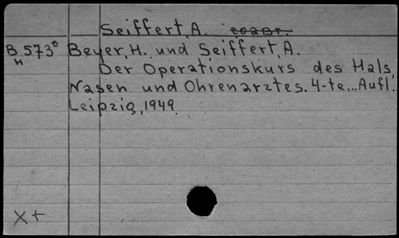 Seiffert, A.
B 573⁰ Beyer, H. und Seiffert, A.
H
Der Operationskurs des Hals,
Nasen und Ohrenarztes. 4-te... Aufl.
Leipzig, 1949
X+